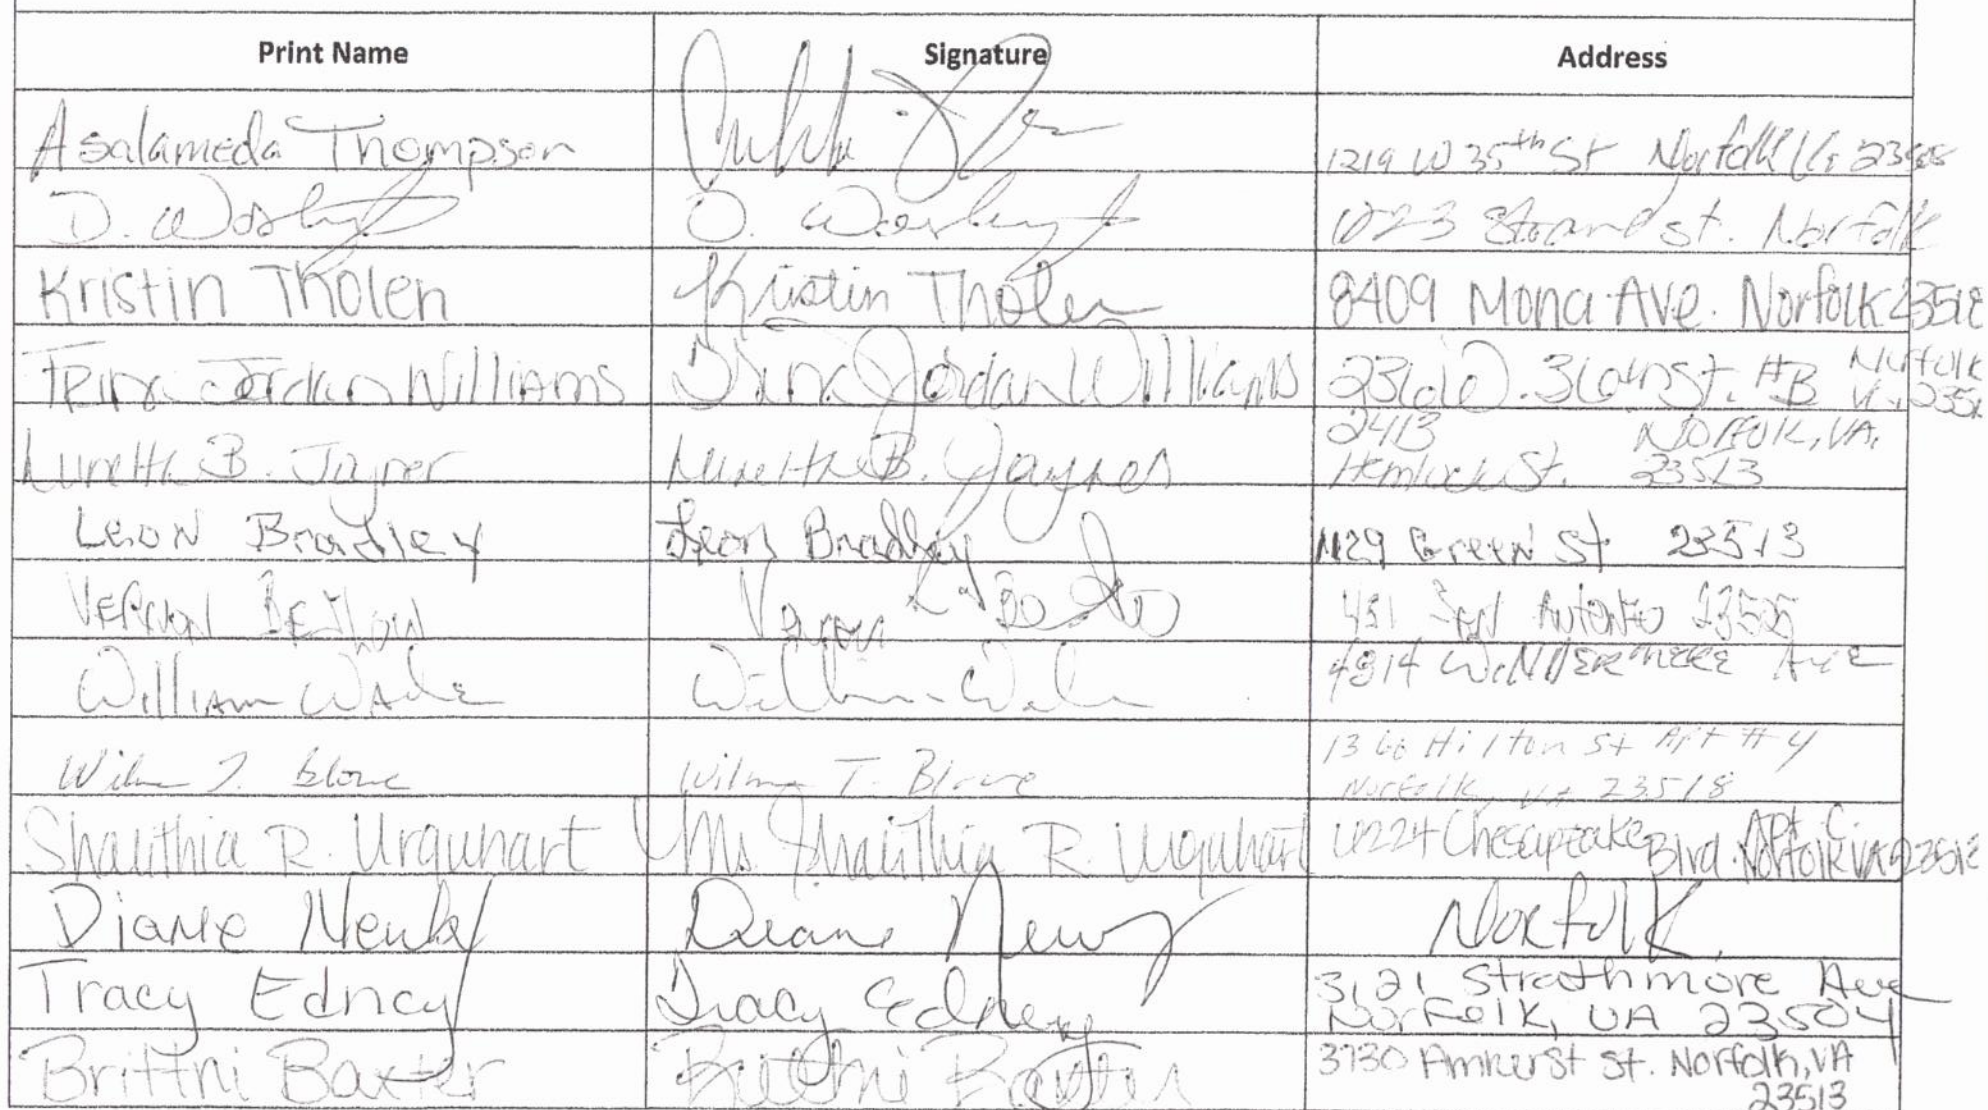 Print Name Signature Address
Asalameda Thompson 1219 W 35th St Norfolk Va 23508
D. D. St. Norfolk
Kristin Tholen Kristin Tholen 8409 Mona Ave. Norfolk 23518
Trina Jordan Williams Trina Jordan Williams #B Norfolk
B. B. 2413 Norfolk, VA.
Hemlock St. 23513
Leon Bradley Leon Bradley Green St 23513
Vernon Vernon San Antonio
William Wade William Wade 4314 Windermere Ave
Wilma T. Wilma T. Hilton St Apt #4
Norfolk, VA 23518
Shalithia R. Urquhart Ms. Shalithia R. Urquhart Chesapeake Blvd. Apt C. Norfolk VA
Diane Newby Diane Newby Norfolk
Tracy Edney Tracy Edney 3121 Strathmore Ave
Norfolk, VA 23504
Brittni Baxter Brittni Baxter 3730 Amherst St. Norfolk, VA
23513